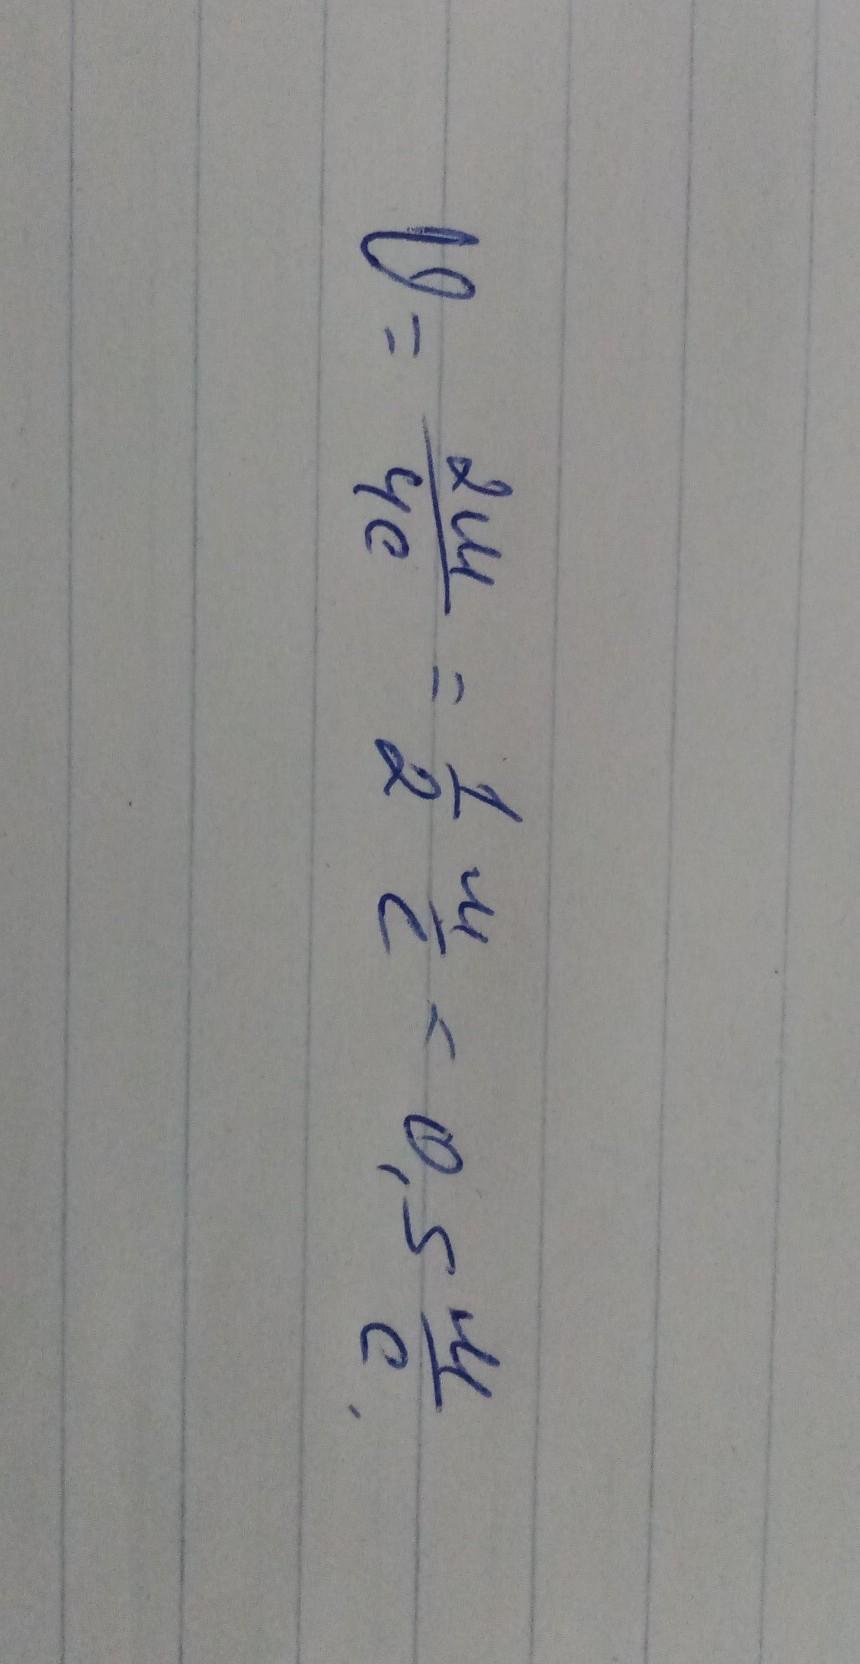 V = 2м/4с = 1/2 м/с = 0,5 м/с.